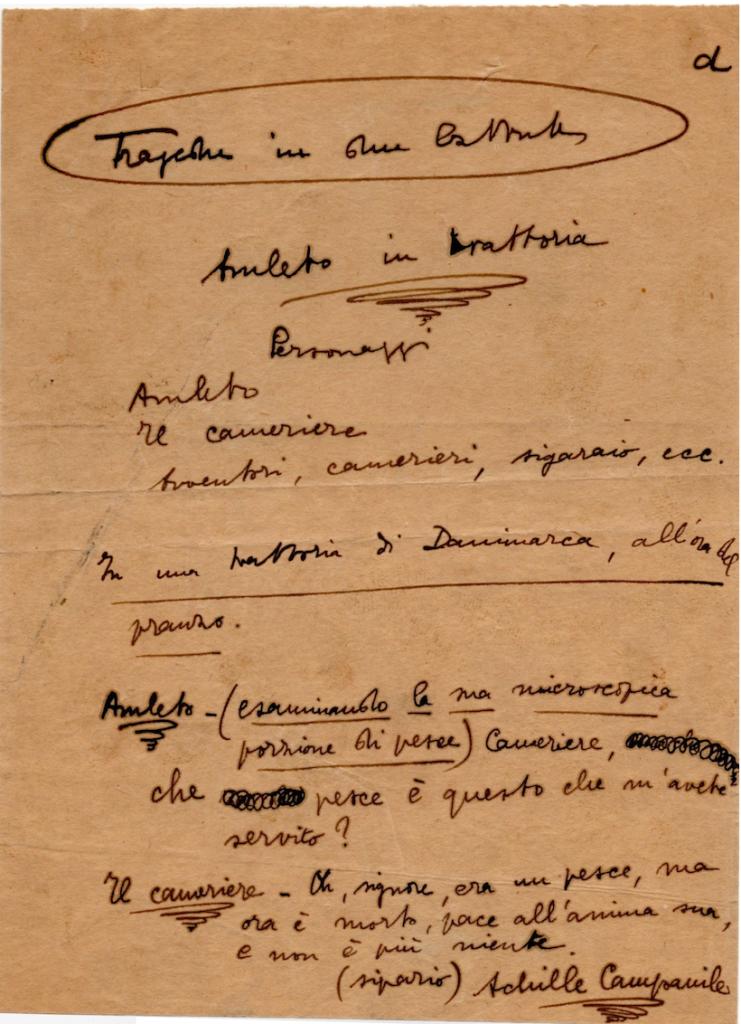 d
Tragedie in due battute
Amleto in trattoria
Personaggi
Amleto
Il cameriere
Avventori, camerieri, sigaraio, ecc.
In una trattoria di Danimarca, all'ora del
pranzo.
Amleto - (esaminando la sua microscopica
porzione di pesce) Cameriere,
che pesce è questo che m'avete
servito?
Il cameriere - Oh, signore, era un pesce, ma
ora è morto, pace all'anima sua,
e non è più niente.
(sipario) Achille Campanile